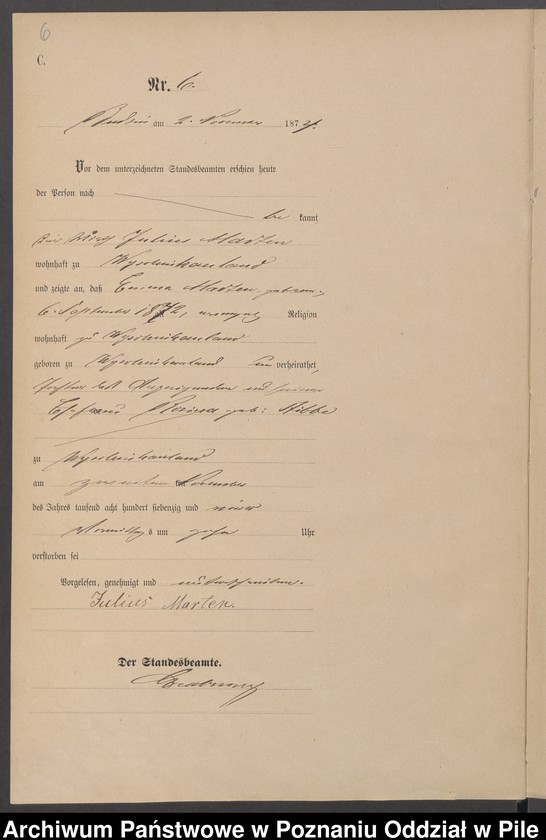 6
C.
Nr. 6.
am 2. November 1874.
Vor dem unterzeichneten Standesbeamten erschien heute
der Person nach
be kannt
der Wirth Julius Marten
wohnhaft zu
und zeigte an, daß Emma Marten, geboren
6. September 1872, evangel. Religion
wohnhaft zu
geboren zu un verheirathet,
Tochter des Anzeigenden und seiner
Ehefrau Rosina geb:
zu
am zweiten ten November
des Jahres tausend acht hundert siebenzig und vier
Vormittag s um zehn Uhr
verstorben sei
Vorgelesen, genehmigt und unterschrieben.
Julius Marten.
Der Standesbeamte.
Archiwum Państwowe w Poznaniu Oddział w Pile